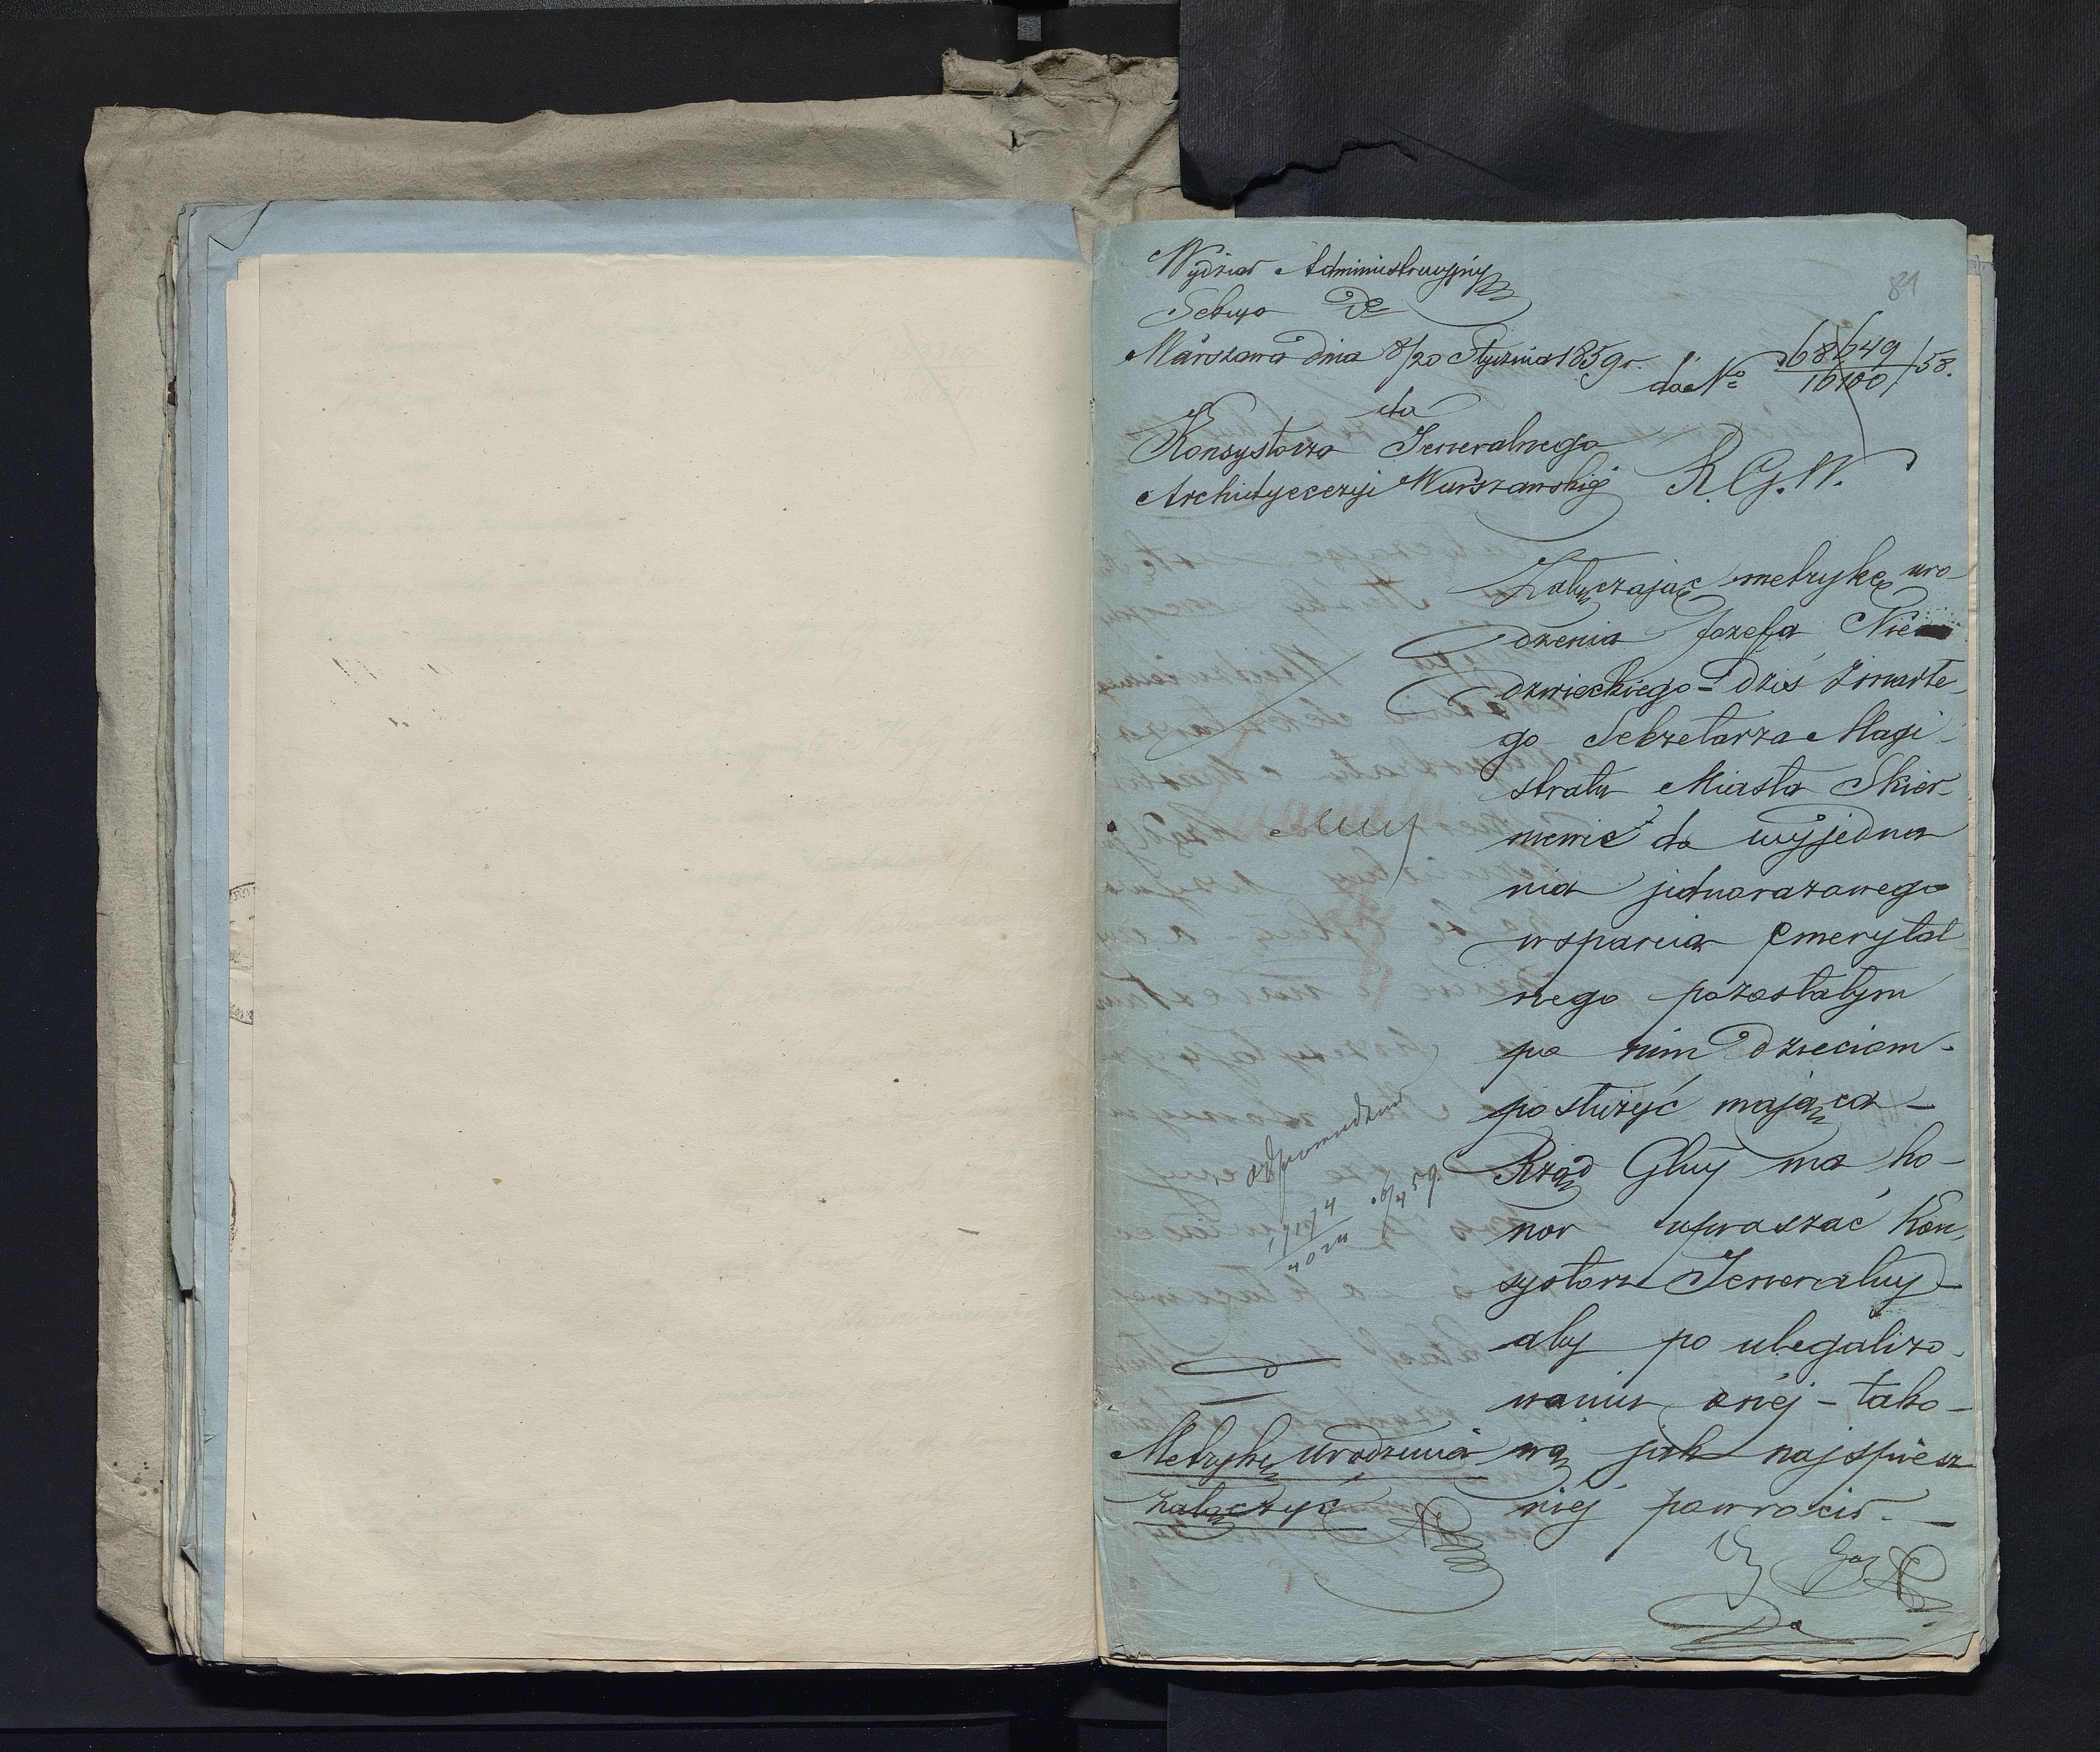 81
Wydział Administracyjny
Sekcya
Warszawa dnia 8/20 Stycznia 1859 r.
do No 68649/16100/58.
do
Konsystorza Jeneralnego
Archidyecezyi Warszawskiej
R. G. W.
Załączając metrykę uro-
dzenia Józefa Nie
dzwieckiego - dziś zmarłe-
go Sekretarza Magi-
stratu Miasta Skier-
niewic do wyjedna
nia jednorazowego
wsparcia emerytal
nego pozostałym
po nim dzieciom -
posłużyć mającą -
Rząd Glny ma ho-
nor upraszać Kon-
systorz Jeneralny -
aby po ulegalizo-
waniu oniej - tako-
wą jak najspiesz
niej powrócił. -
odpowiedziano
Metrykę urodzenia
załączyć